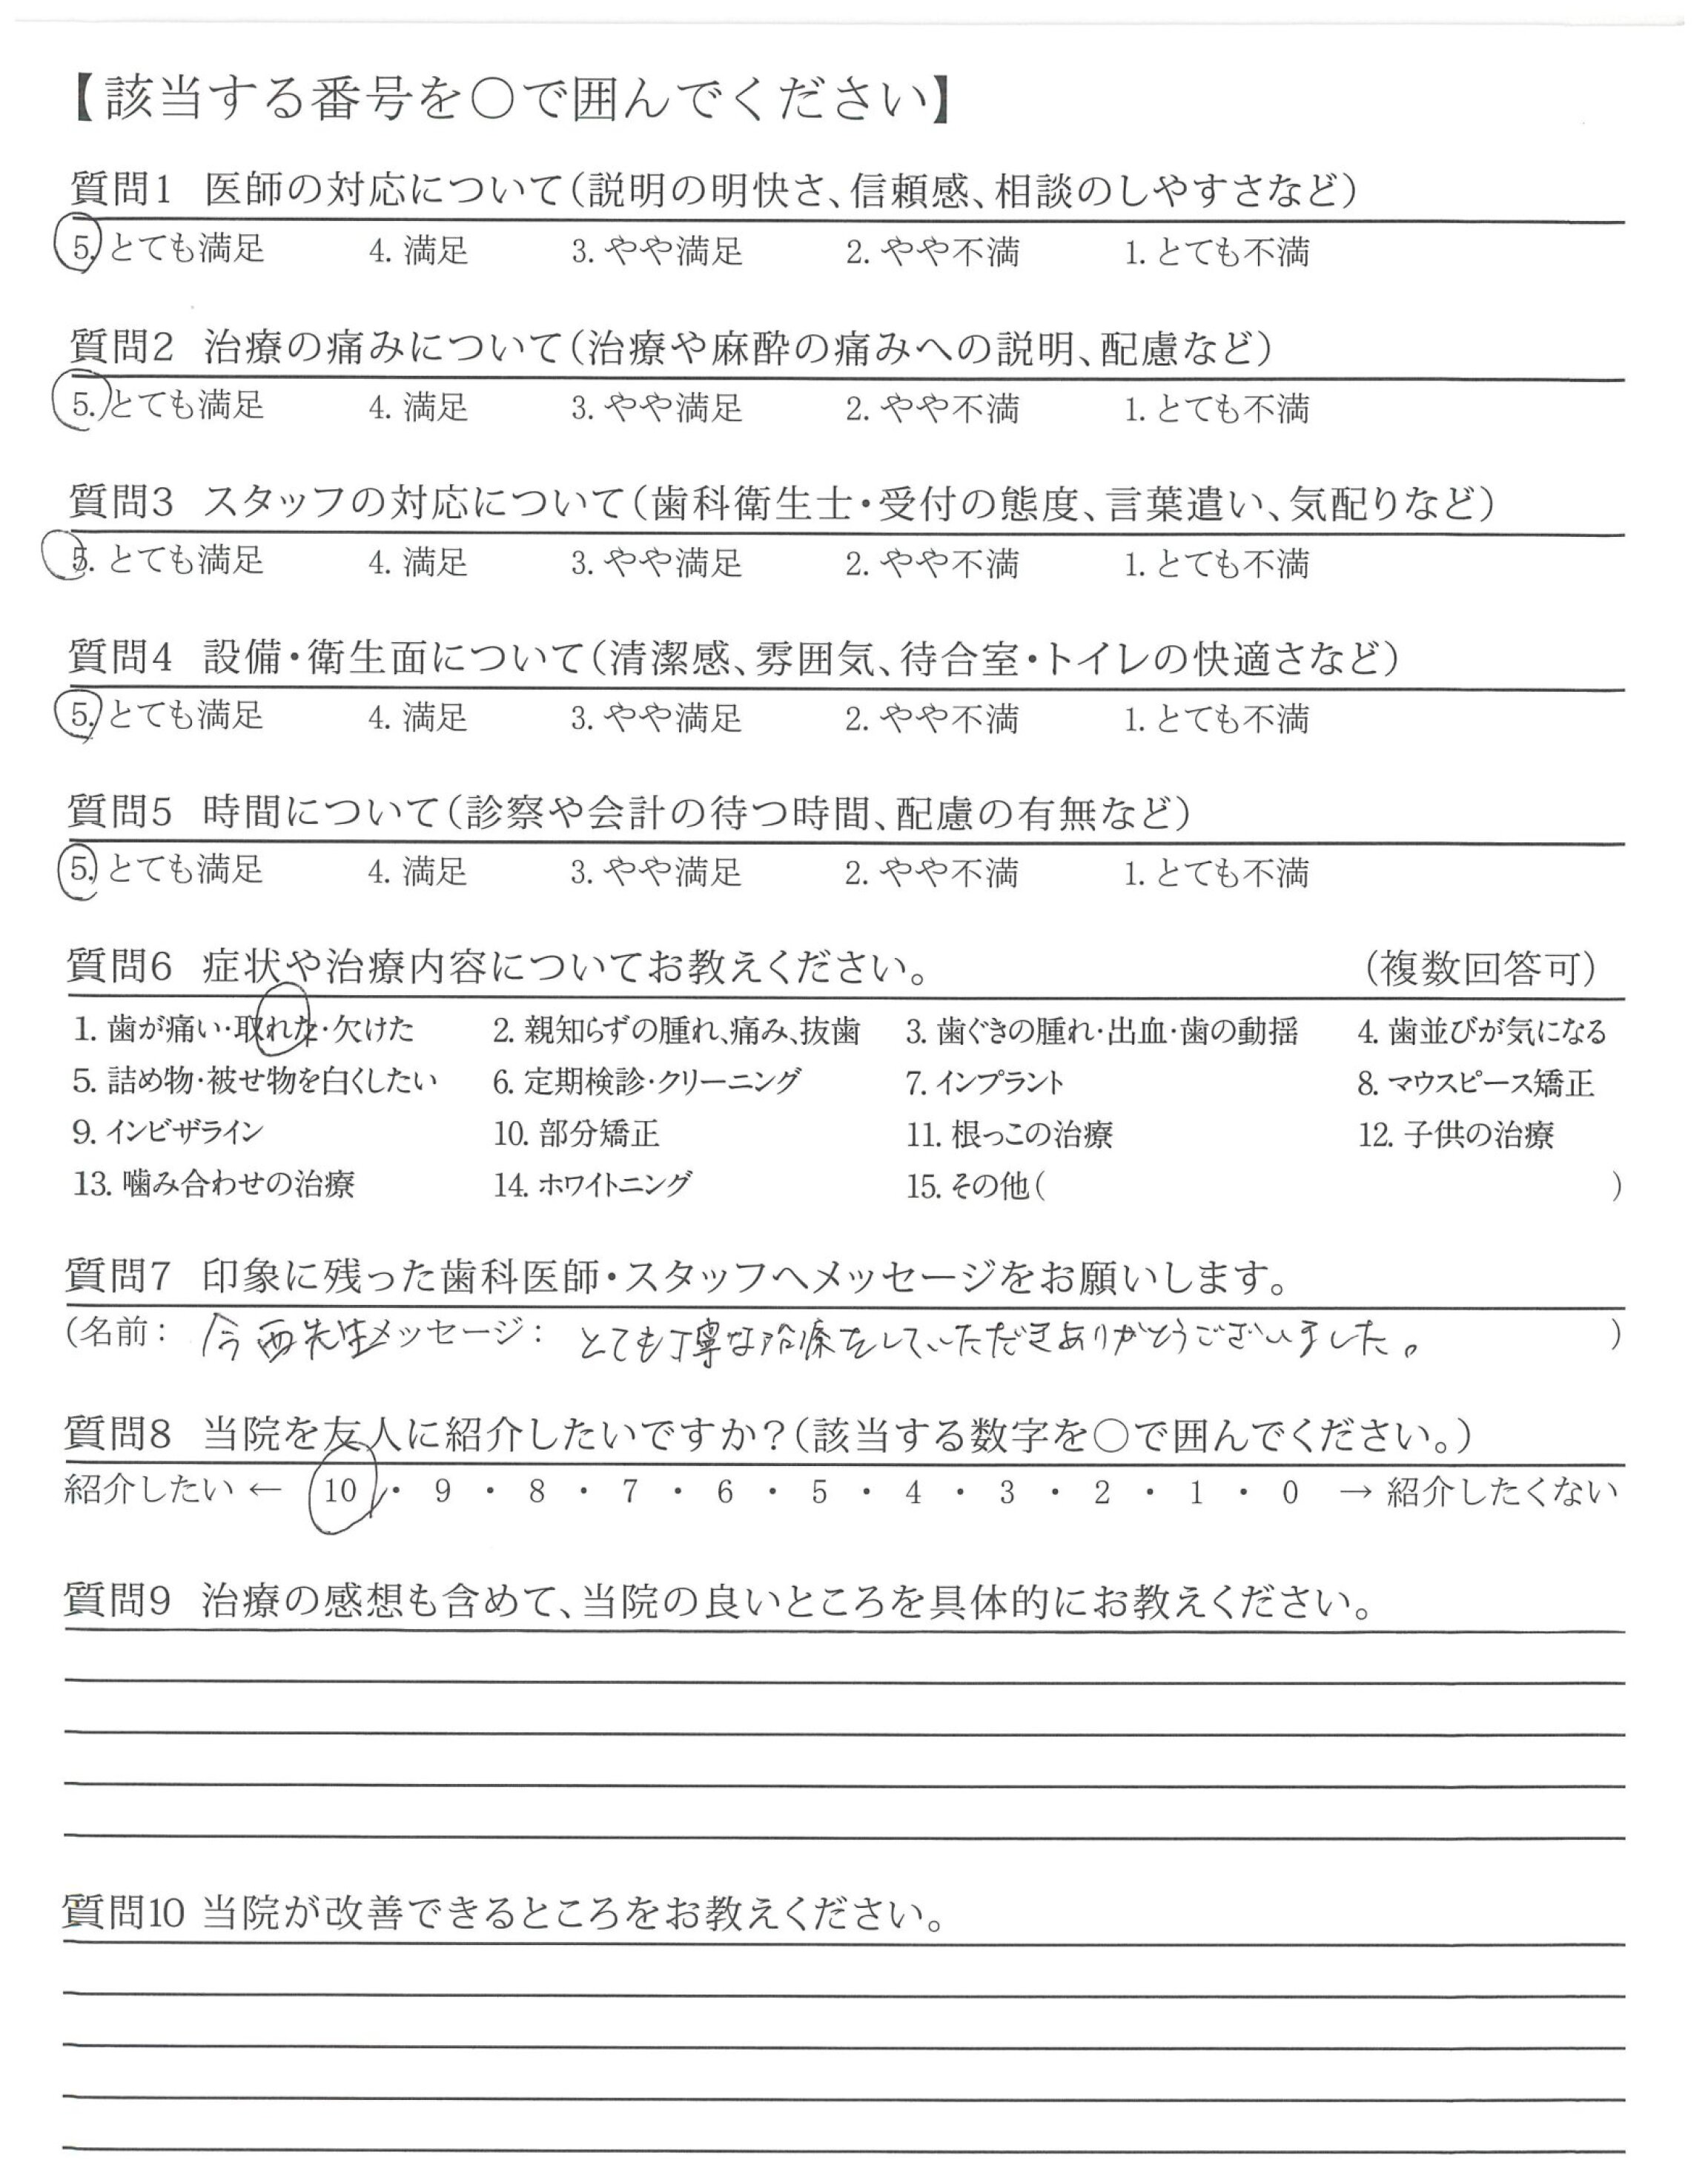 【該当する番号を○で囲んでください】
質問1 医師の対応について（説明の明快さ、信頼感、相談のしやすさなど）
5. とても満足 4. 満足 3. やや満足 2. やや不満 1. とても不満
質問2 治療の痛みについて（治療や麻酔の痛みへの説明、配慮など）
5. とても満足 4. 満足 3. やや満足 2. やや不満 1. とても不満
質問3 スタッフの対応について（歯科衛生士・受付の態度、言葉遣い、気配りなど）
5. とても満足 4. 満足 3. やや満足 2. やや不満 1. とても不満
質問4 設備・衛生面について（清潔感、雰囲気、待合室・トイレの快適さなど）
5. とても満足 4. 満足 3. やや満足 2. やや不満 1. とても不満
質問5 時間について（診察や会計の待つ時間、配慮の有無など）
5. とても満足 4. 満足 3. やや満足 2. やや不満 1. とても不満
質問6 症状や治療内容についてお教えください。 （複数回答可）
1. 歯が痛い・取れた・欠けた 2. 親知らずの腫れ、痛み、抜歯 3. 歯ぐきの腫れ・出血・歯の動揺 4. 歯並びが気になる
5. 詰め物・被せ物を白くしたい 6. 定期検診・クリーニング 7. インプラント 8. マウスピース矯正
9. インビザライン 10. 部分矯正 11. 根っこの治療 12. 子供の治療
13. 噛み合わせの治療 14. ホワイトニング 15. その他（ ）
質問7 印象に残った歯科医師・スタッフへメッセージをお願いします。
（名前： 今西先生 メッセージ： とても丁寧な治療をしていただきありがとうございました。 ）
質問8 当院を友人に紹介したいですか？（該当する数字を○で囲んでください。）
紹介したい ← 10 ・ 9 ・ 8 ・ 7 ・ 6 ・ 5 ・ 4 ・ 3 ・ 2 ・ 1 ・ 0 → 紹介したくない
質問9 治療の感想も含めて、当院の良いところを具体的にお教えください。
質問10 当院が改善できるところをお教えください。